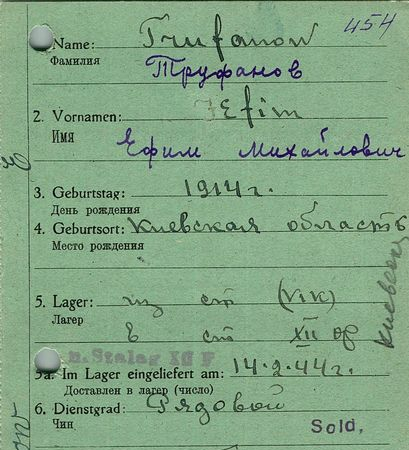 454
Name: Trufanow
Фамилия
Труфанов
2. Vornamen: Jefim
Имя
Ефим Михайлович
3. Geburtstag: 1914 г.
День рождения
4. Geburtsort: Киевская область
Место рождения
5. Lager: из ст (VIК)
Лагер
в ст XII ф
5a. Im Lager eingeliefert am: 14.2.44 г.
Доставлен в лагер (число)
6. Dienstgrad: Рядовой
Чин
Sold.